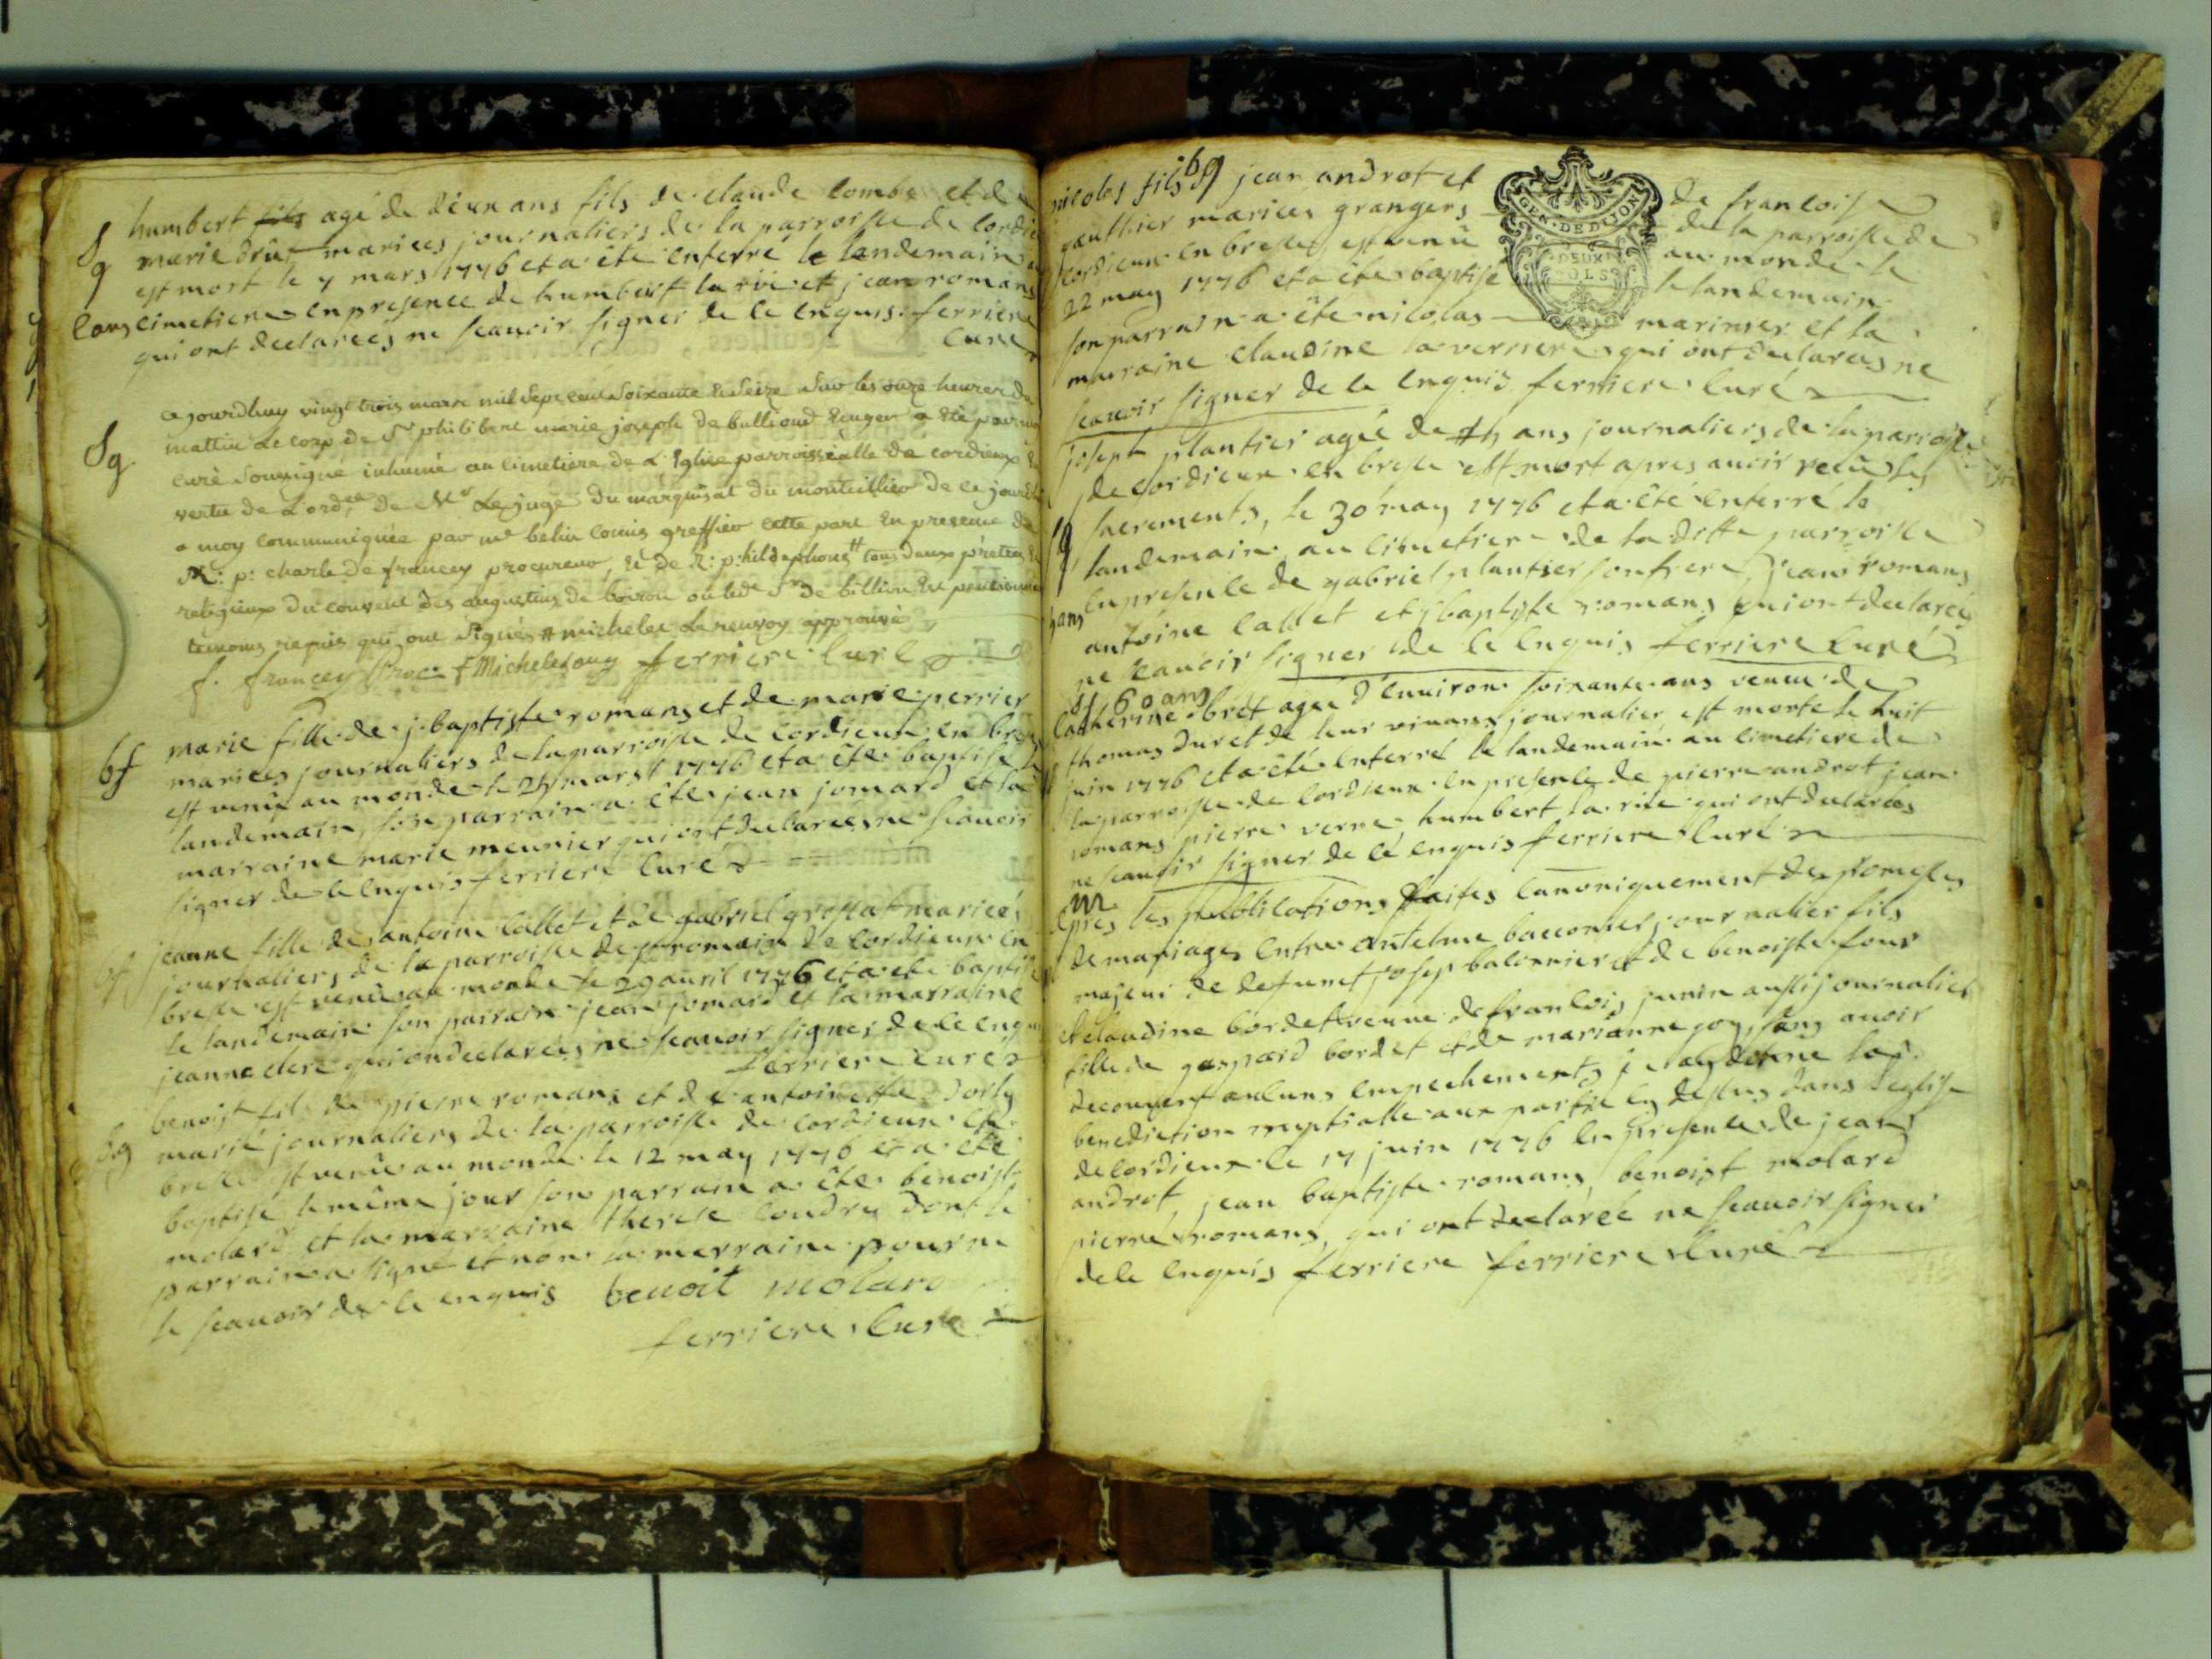 humbert fils agé de deux ans fils de claude combe et de
marie drut mariees journaliers de la parroisse de cordieu
est mort le 7 mars 1776 et a été enterré le landemain au
cimetiere en presence de humbert la rüe et jean romans
qui ont declareés ne scauoir signer de ce enquis. ferriere
curé
Sg
2 ans
ce jourdhuy vingt trois mars mil sept cent soixante et seize sur les onze heures du
mattin le corp de Sr philibert marie joseph de bullioud a été par nous
curé soussigné inhumé au cimetiere de L'Eglise parroissialle de cordieux en
vertu de L'ordce de Mr Le juge du marquisat du montellier de ce jourd
a moy communiquée par me belin comis greffier cette part En presence du
R: p: charle de francey procureur, et de R: p: hildephons tt tous deux prêtres et
religieux du couvent des augustins de
temoins requis qui ont signés # michelet Le renvoy approuvé
f. francey proc. f Michelet ferriere curé
Sg.
marie fille de j. baptiste romans et de marie perrier
mariees journaliers de la parroisse de cordieux en bresse
est venüe au monde le mars 1776 et a éte baptisé le
landemain, son parrain a éte jean jomard et la
marraine marie meunier qui ont declareés ne scauoir
signer de ce enquis ferriere curé
bf
jeanne fille de antoine callet et de gabriel grossat mariées
journaliers de la parroisse de st romain de cordieux en
bresse est venüe au monde le 29 auril 1776 et a ete baptisé
le landemain son parrain jean jomard et la marraine
jeanne clerc qui on declareés ne scauoir signer de ce enquis
ferriere curé
bf
benoist fils de pierre romans et de antoinette dorly
marié journaliers de la parroisse de cordieux en
bresse est venüe au monde le 12 may 1776 et a été
baptisé le même jour son parrain a éte benoist
molard et la marraine therese coudry dont le
parrain a signé et non la marraine pour ne
le scauoir de ce enquis benoit molard
ferriere curé
bg
nicolas fils bg jean androt et de francoise
gauthier mariees grangers de la parroisse de
cordieux en bresse est venü au monde le
22 may 1776 et a éte baptisé le landemain
son parrain a éte nicolas marinier et la
marraine claudine la verriere qui ont declareés ne
scauoir signer de ce enquis ferriere curé
GEN. DE DIJON
DEUX
SOLS
joseph plantier agée de ans journaliers de la parroisse
de cordieux en bresse est mort apres auoir recü les
sacrements, le 30 may 1776 et a été enterré le
landemain au cimetiere de la ditte parroisse
en presence de gabriel plantier son frere, jean romans
antoine callet et j baptiste romans qui ont declareés
ne scauoir signer de ce enquis ferriere curé
Sf 60 ans
catherine bret agée d'enuiron soixante ans veuue de
thomas duret de leur viuans journalier est morte le huit
juin 1776 et a été enterré le landemain au cimetiere de
la parroisse de cordieux en presence de pierre androt jean
romans pierre verne, humbert la rüe qui ont declareés
ne scauoir signer de ce enquis ferriere curé
m
apres les publications faites canoniquement des promesses
de mariages entre antelme baconnier journalier fils
majeur de defunct josep baconnier et de benoiste four
et claudine bordet veuue de francois junin aussi journalier
fille de gaspard bordet et de marianne goy, sans auoir
decouuert aucuns empechements je ay donne la
benediction nuptialle aux parties cy dessus dans l'eglise
de cordieux le 17 juin 1776 en presence de jean
androt, jean baptiste romans, benoist molard
pierre romans, qui ont declareé ne scauoir signer
de ce enquis ferriere ferriere curé